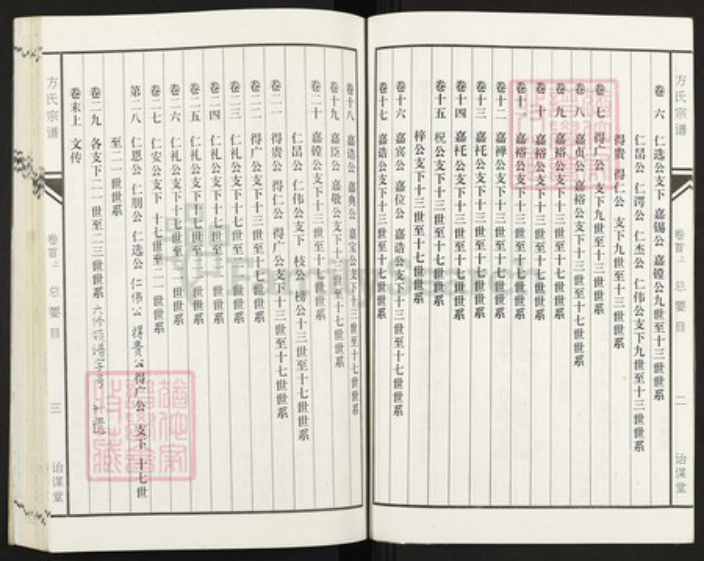 方氏宗谱
卷首上
总要目
二
治谋堂
卷六 仁选公支下 嘉锡公 嘉镗公九世至十三世世系
仁昷公 仁谔公 仁杰公 仁伟公支下九世至十三世世系
得贵 得仁公 支下九世至十三世世系
卷七 得广公 支下九世至十三世世系
卷八 嘉贞公 嘉裕公支下十三世至十七世世系
卷九 嘉裕公支下十三世至十七世世系
卷十 嘉裕公支下十三世至十七世世系
卷十 嘉裕公支下十三世至十七世世系
卷十二 嘉禅公支下十三世至十七世世系
卷十三 嘉祍公支下十三世至十七世世系
卷十四 嘉祍公支下十三世至十七世世系
卷十五 祝公支下十三世至十七世世系
梓公支下十三世至十七世世系
卷十六 嘉宾公 嘉位公 嘉诰公支下十三世至十七世世系
卷十七 嘉诰公支下十三世至十七世世系
卷十八 嘉诰公 嘉典公 嘉宝公支下十三世至十七世世系
卷十九 嘉臣公 嘉敬公支下十三世至十七世世系
卷二十 嘉镗公支下十三世至十七世世系
仁昷公 仁伟公支下 枝公 榜公十三世至十七世世系
卷二一 得贵公 得仁公 得广公支下十三世至十七世世系
卷二二 得广公支下十三世至十七世世系
卷二三 仁礼公支下十七世至 世世系
卷二四 仁礼公支下十七世至 世世系
卷二五 仁礼公支下十七世至 世世系
卷二六 仁礼公支下十七世至 世世系
卷二七 仁安公支下 十七世至二一 世世系
第二八 仁恩公 仁朋公 仁选公 仁伟公 得贵公 得广公 支下 十七世
至二一世世系
卷二九 各支下二一世至二三世世系
卷末上 文传
方氏宗谱
卷首上
总要目
三
治谋堂